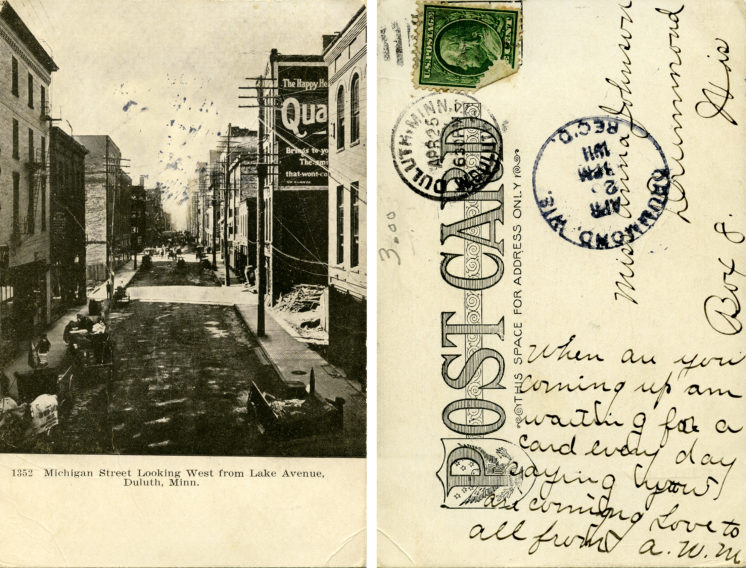 The Happy He
Qua
Brings to yo
The smi
that-wont-co
1352 Michigan Street Looking West from Lake Avenue,
Duluth, Minn.
U.S. POSTAGE
CENT
DULUTH, MINN.
APR 25
1911
POST CARD
THIS SPACE FOR ADDRESS ONLY
3.00
DRUMMOND, WIS.
APR
26
1911
REC'D.
Miss Anna Johnson
Drummond
Wis
Box 8.
When are you
coming up am
waiting for a
card every day
saying your
are coming Love to
all from A. W. M.